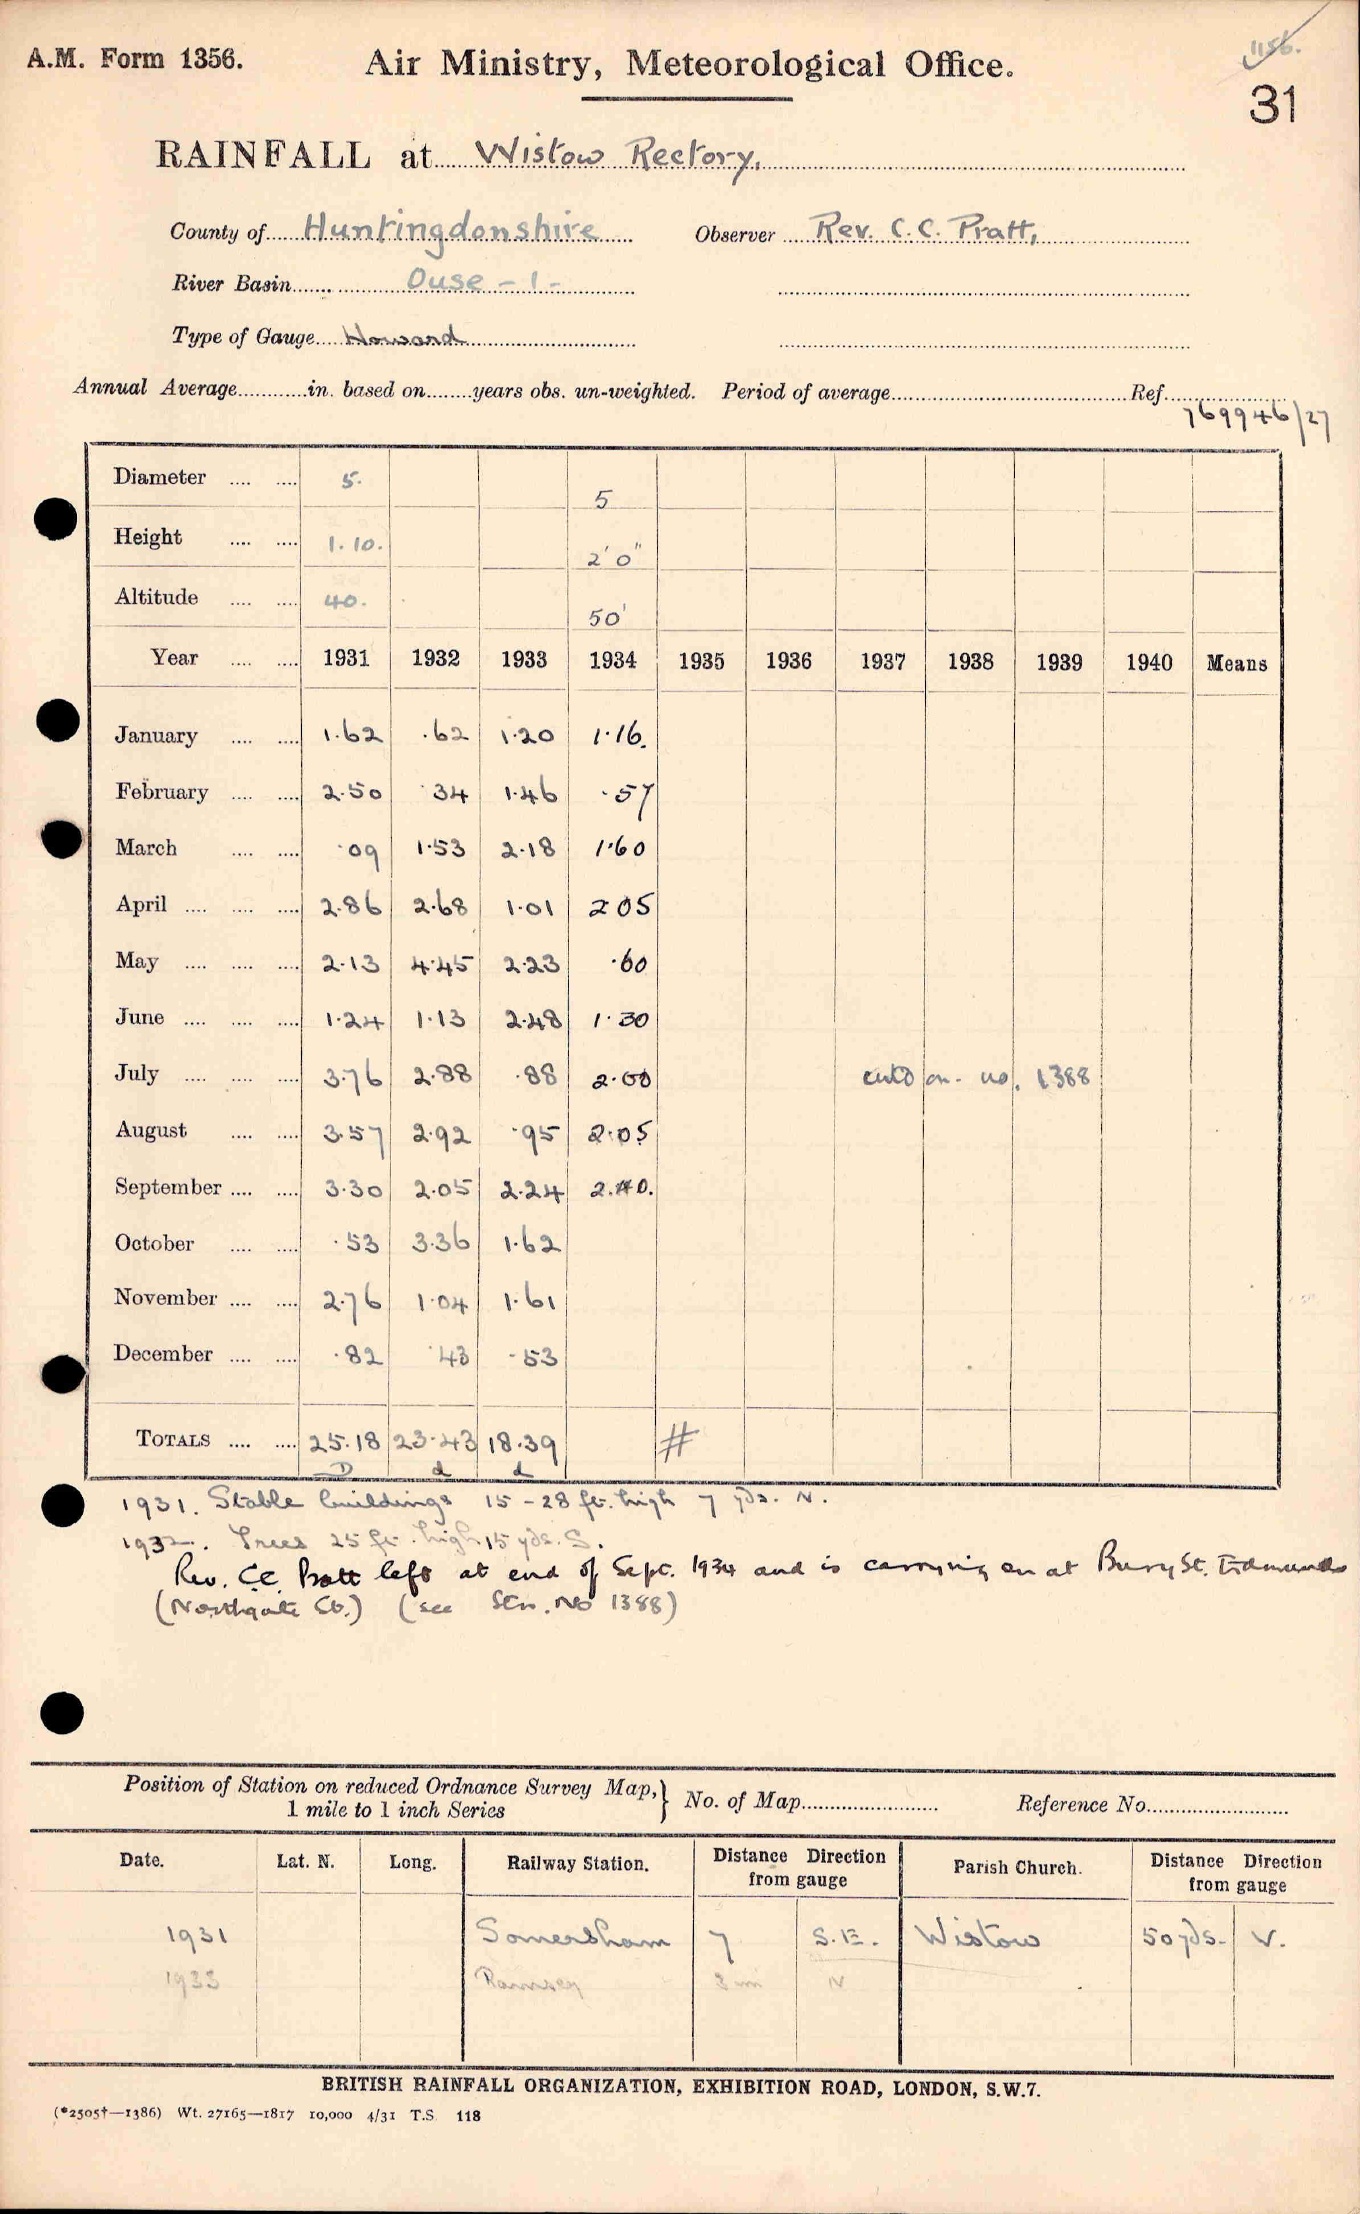 1156.
A.M. Form 1356.
Air Ministry, Meteorological Office.
31
RAINFALL at Wistow Rectory,
County of Huntingdonshire Observer Rev. C. C. Pratt,
River Basin Ouse - 1 -
Type of Gauge Howard
Annual Average in. based on years obs. un-weighted. Period of average Ref. 769946/27
Diameter 5. 5
Height 1.10. 2' 0"
Altitude 40. 50'
Year 1931 1932 1933 1934 1935 1936 1937 1938 1939 1940 Means
January 1.62 .62 1.20 1.16.
February 2.50 .34 1.46 .57
March .09 1.53 2.18 1.60
April 2.86 2.68 1.01 2 05
May 2.13 4.45 2.23 .60
June 1.24 1.13 2.48 1.30
July 3.76 2.88 .88 2.00 on no. 1388
August 3.57 2.92 .95 2.05
September 3.30 2.05 2.24 2.40.
October .53 3.36 1.62
November 2.76 1.04 1.61
December .82 .43 .53
TOTALS 25.18 23.43 18.39 #
D d d
1931. Stable buildings 15 - 28 ft. high 7 yds. N.
1932. Trees 25 ft. high 15 yds. S.
Rev. C.C. Pratt left at end of Sept. 1934 and is carrying on at Bury St. Edmunds
(Northgate St.) (see Stn. No 1388)
Position of Station on reduced Ordnance Survey Map,} No. of Map Reference No.
1 mile to 1 inch Series
Date. Lat. N. Long. Railway Station. Distance Direction from gauge Parish Church. Distance Direction from gauge
1931 Somersham 7 S.E. Wistow 50 yds. W.
1933 Ramsey 3 m N
BRITISH RAINFALL ORGANIZATION, EXHIBITION ROAD, LONDON, S.W.7.
(*2505†—1386) Wt. 27165—1817 10,000 4/31 T.S. 118